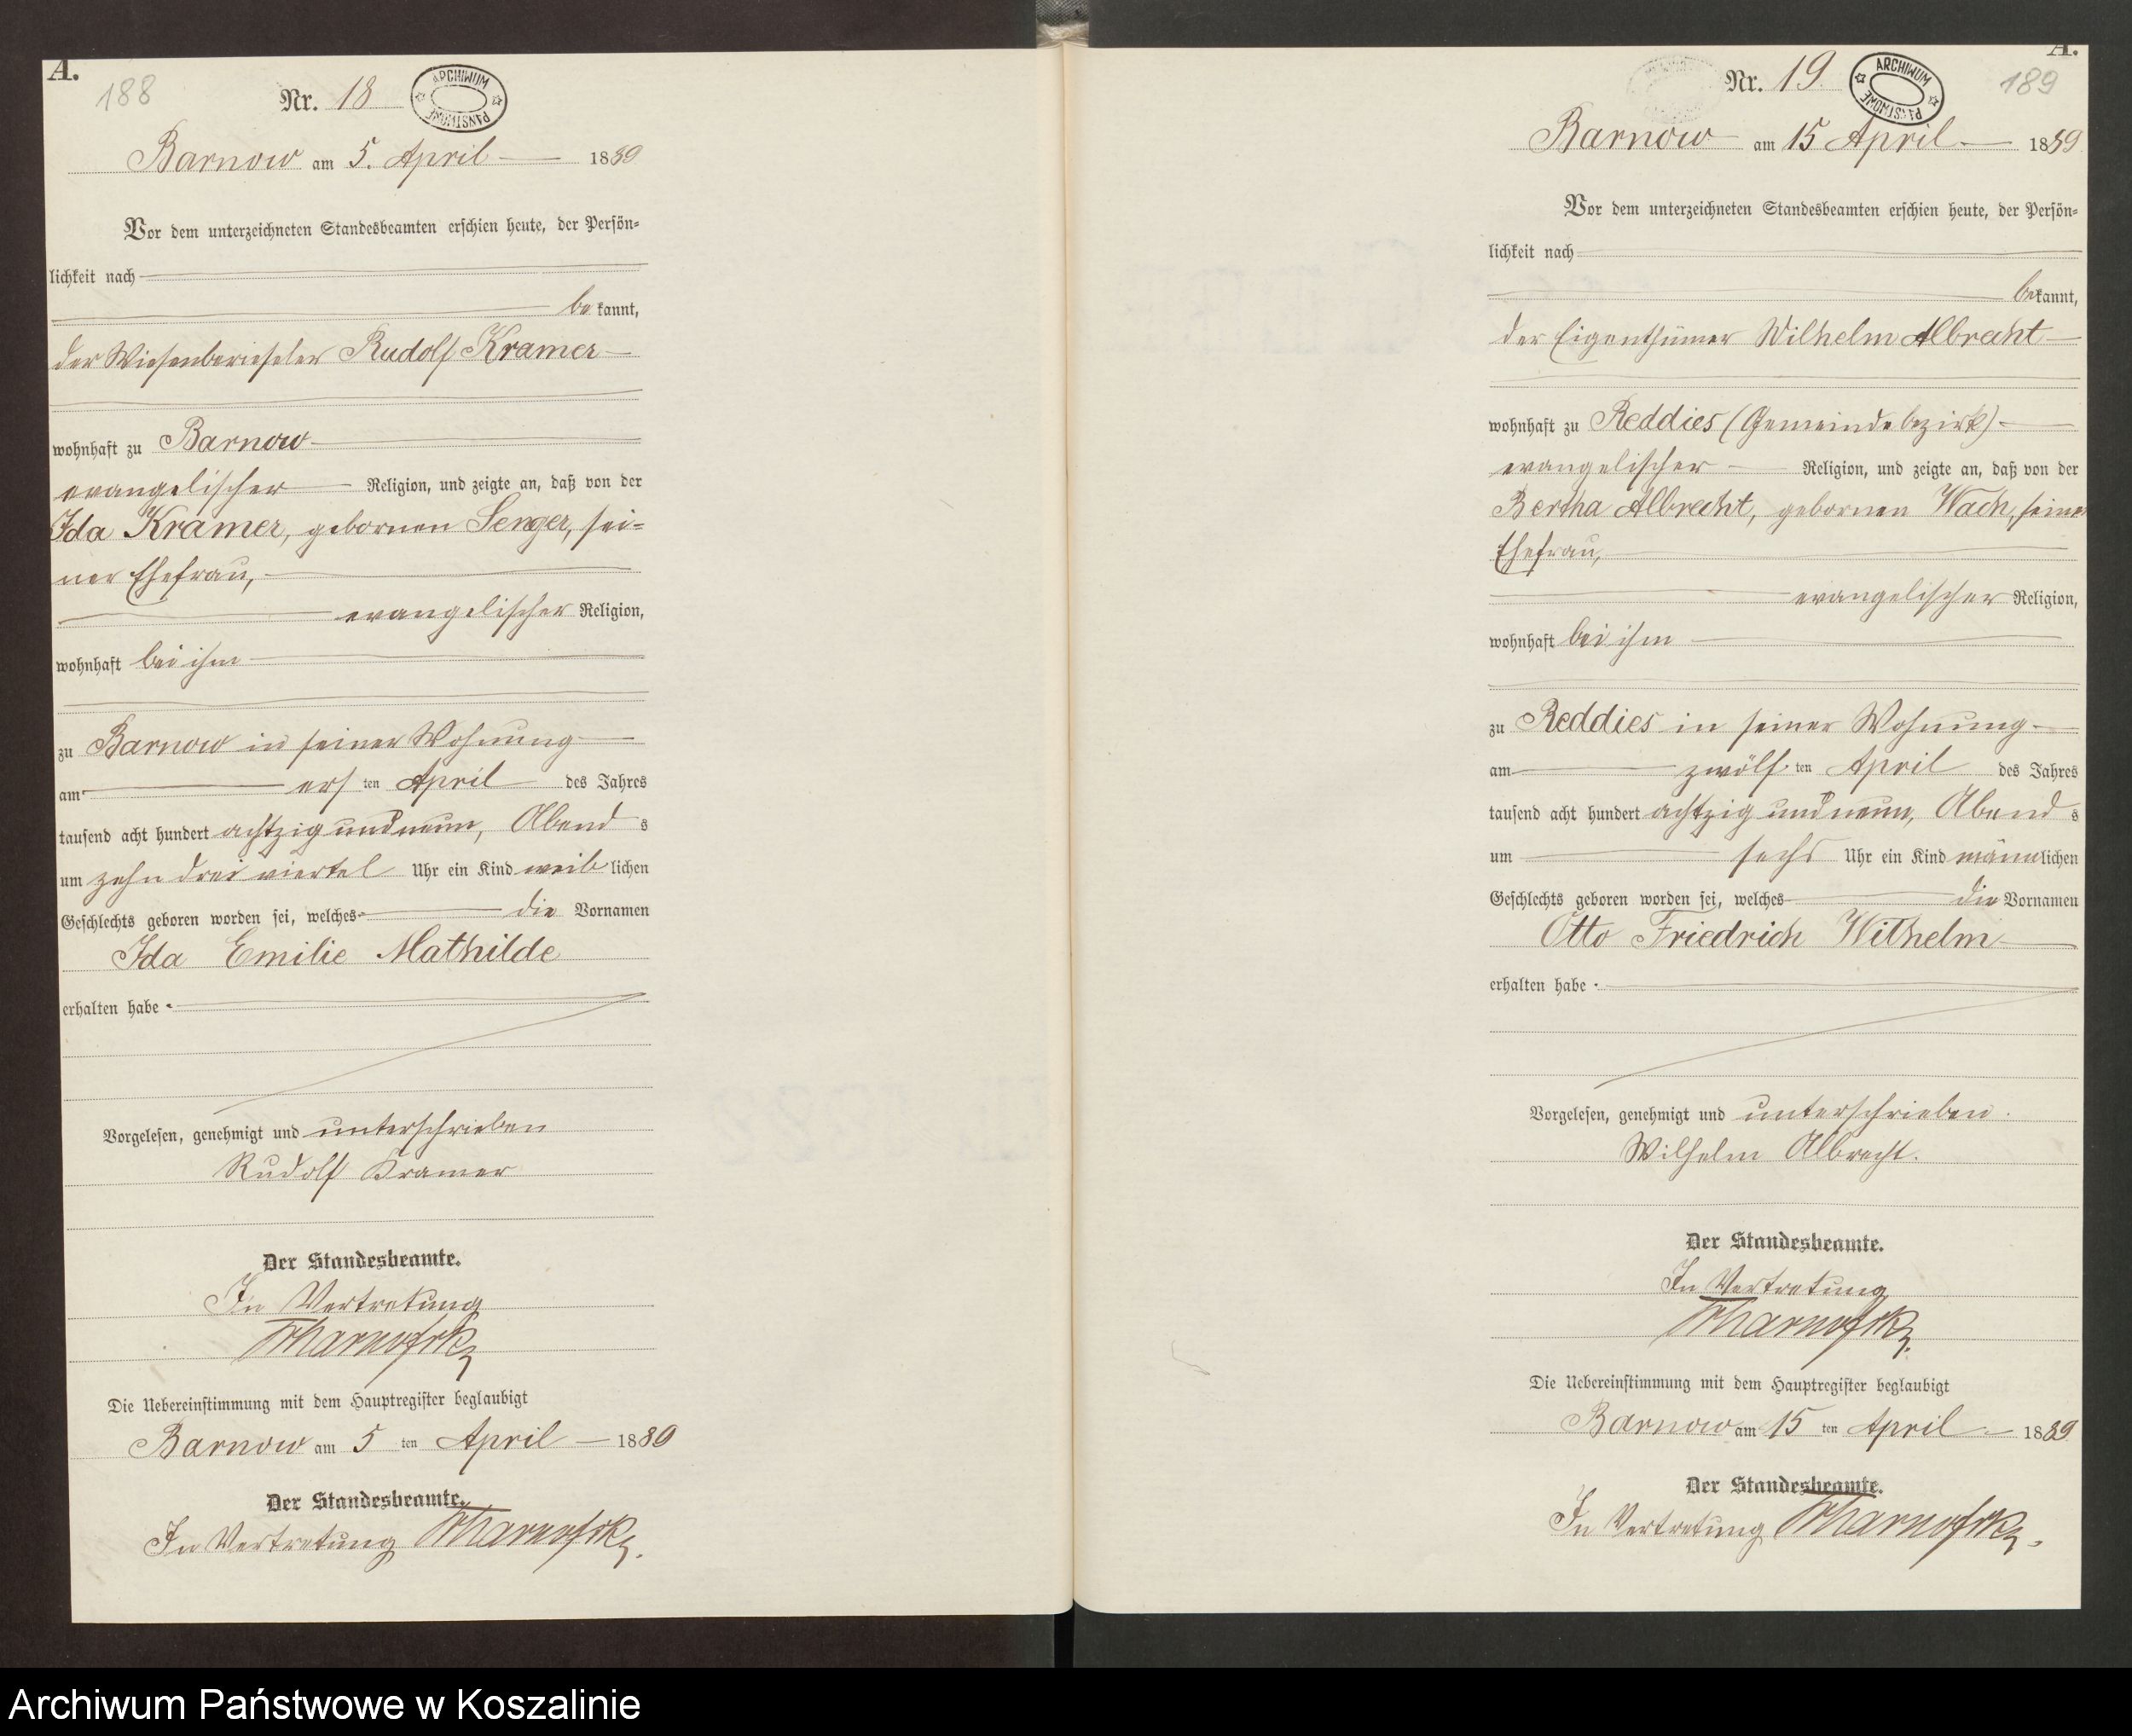 A.
188
Nr. 18
ARCHIWUM PAŃSTWOWE
Barnow am 5. April 1889
Vor dem unterzeichneten Standesbeamten erschien heute, der Persön=
lichkeit nach
bekannt,
der Wiesenberieseler Rudolf Kramer
wohnhaft zu Barnow
evangelischer Religion, und zeigte an, daß von der
Ida Kramer, gebornen Senger, sei=
ner Ehefrau,
evangelischer Religion,
wohnhaft bei ihm
zu Barnow in seiner Wohnung
am ersten April des Jahres
tausend acht hundert achtzig und neun, Abends
um zehn drei viertel Uhr ein Kind weiblichen
Geschlechts geboren worden sei, welches die Vornamen
Ida Emilie Mathilde
erhalten habe
Vorgelesen, genehmigt und unterschrieben
Rudolf Kramer
Der Standesbeamte.
In Vertretung
Die Uebereinstimmung mit dem Hauptregister beglaubigt
Barnow am 5 ten April 1889
Der Standesbeamte.
In Vertretung
A.
189
Nr. 19.
ARCHIWUM PAŃSTWOWE
Barnow am 15 April 1889
Vor dem unterzeichneten Standesbeamten erschien heute, der Persön=
lichkeit nach
bekannt,
der Eigenthümer Wilhelm Albrecht
wohnhaft zu Reddies (Gemeindebezirk)
evangelischer Religion, und zeigte an, daß von der
Bertha Albrecht, gebornen Wach, seiner
Ehefrau,
evangelischer Religion,
wohnhaft bei ihm
zu Reddies in seiner Wohnung
am zwölften April des Jahres
tausend acht hundert achtzig und neun, Abends
um sechs Uhr ein Kind männlichen
Geschlechts geboren worden sei, welches die Vornamen
Otto Friedrich Wilhelm
erhalten habe.
Vorgelesen, genehmigt und unterschrieben.
Wilhelm Albrecht.
Der Standesbeamte.
In Vertretung
Die Uebereinstimmung mit dem Hauptregister beglaubigt
Barnow am 15 ten April 1889
Der Standesbeamte.
In Vertretung
Archiwum Państwowe w Koszalinie